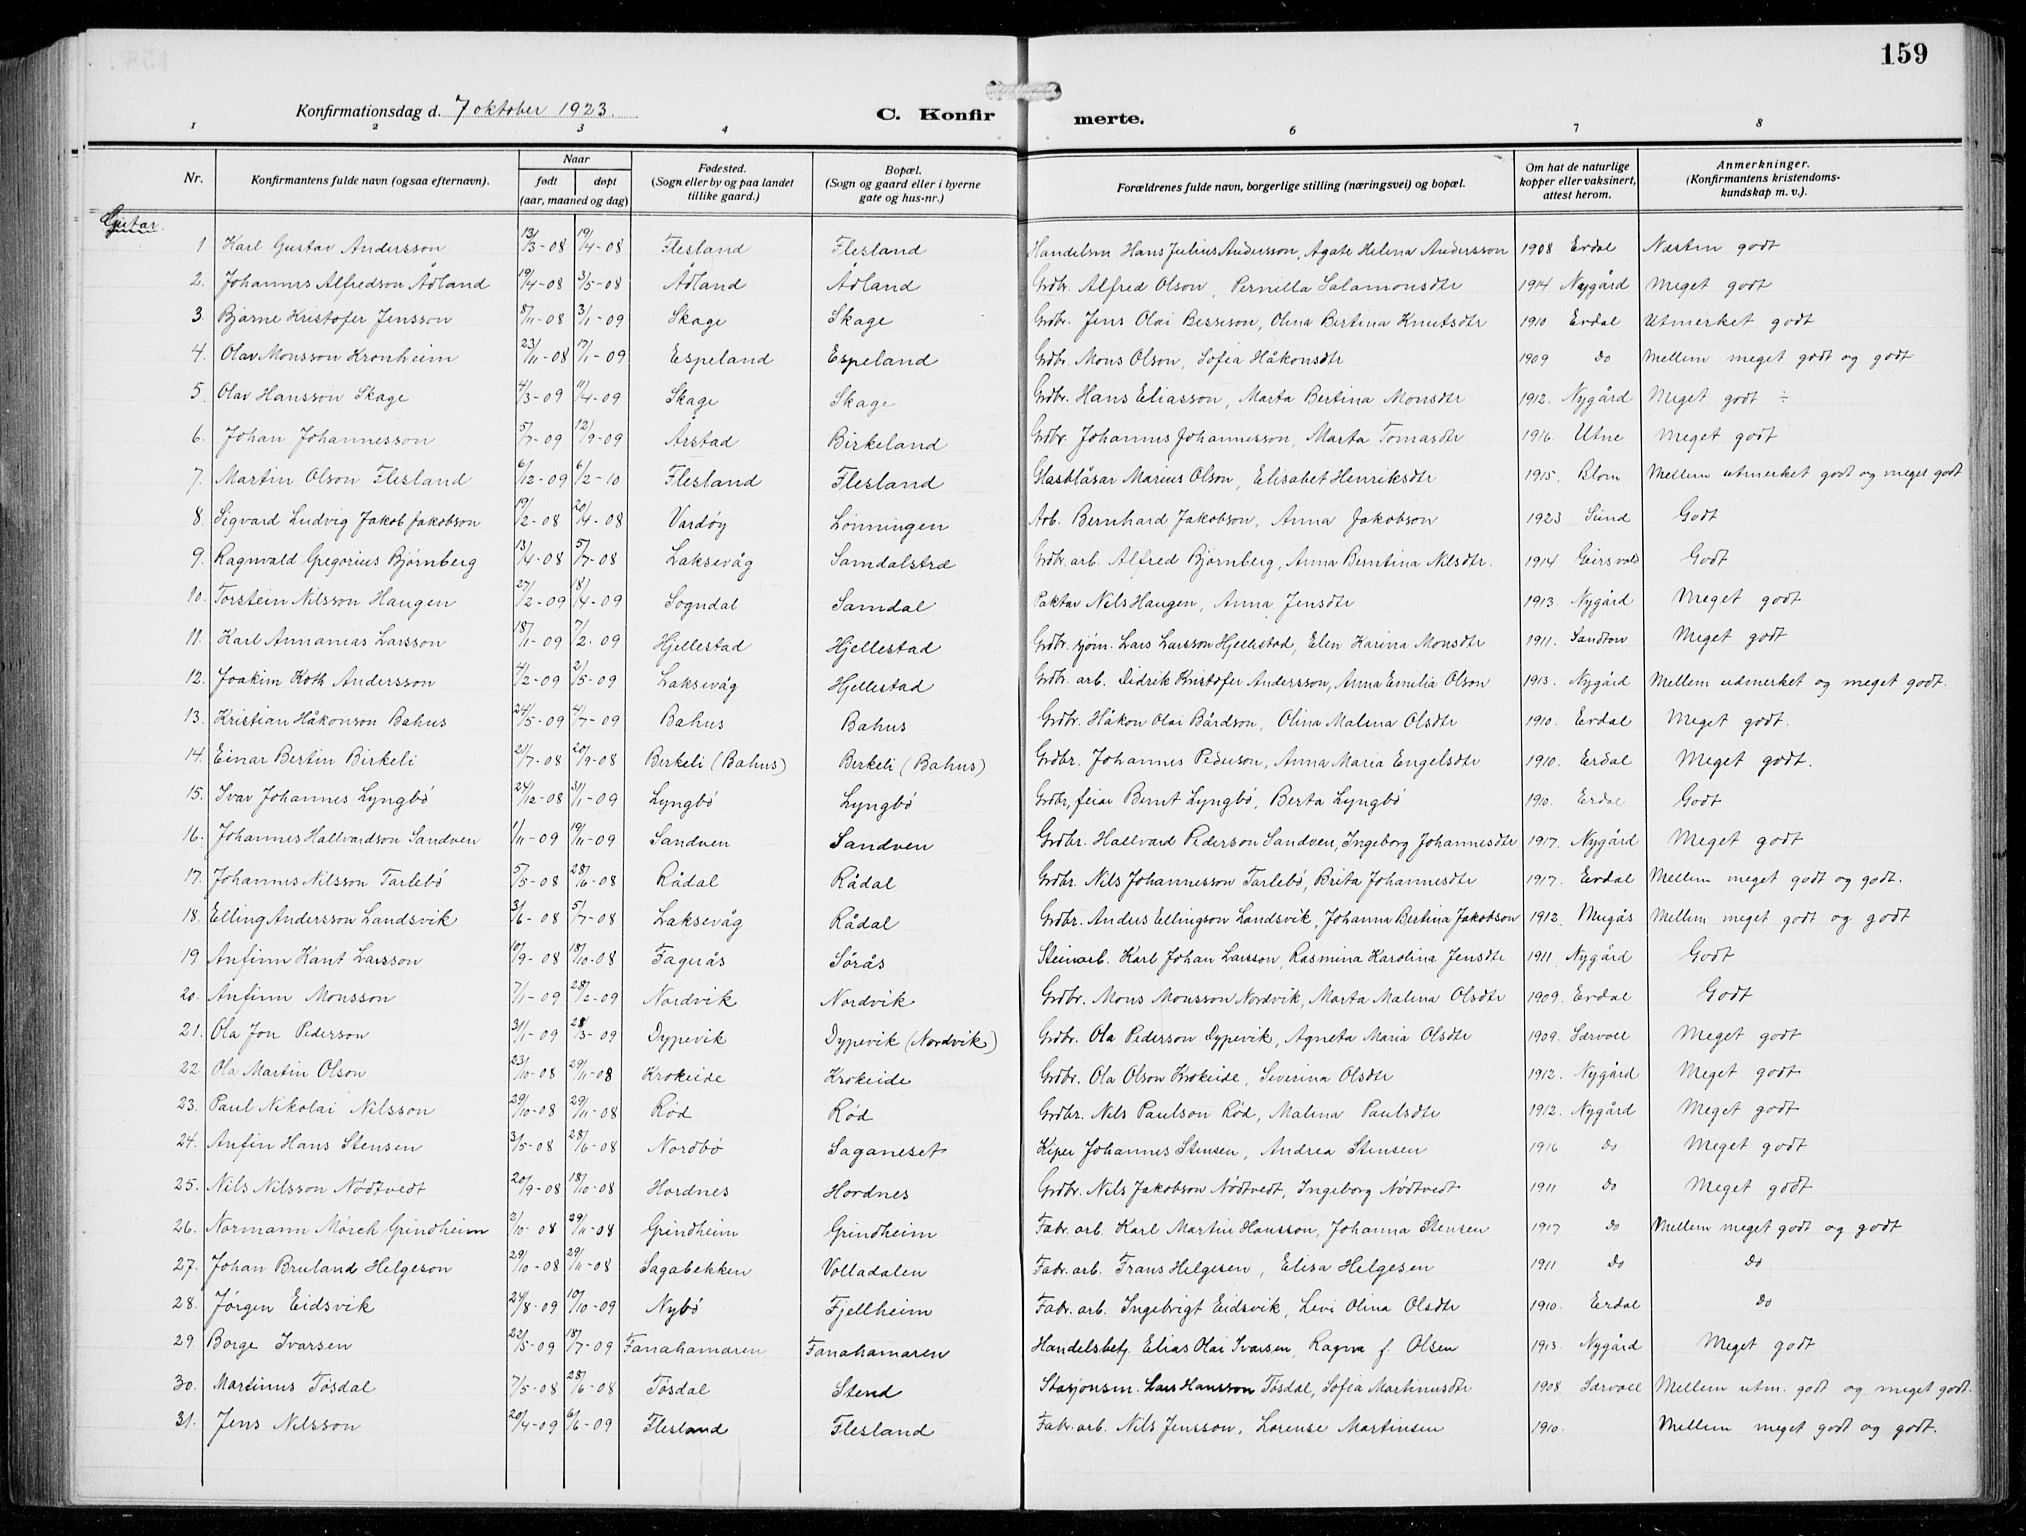 159
Konfirmationsdag d. 7 oktober 1923. C. Konfir merte.
1 2 3 4 5 6 7 8
Nr. Konfirmantens fulde navn (ogsaa efternavn). Naar født døpt (aar, maaned og dag) Fødested. (Sogn eller by og paa landet tillike gaard.) Bopæl. (Sogn og gaard eller i byerne gate og hus-nr.) Forældrenes fulde navn, borgerlige stilling (næringsvei) og bopæl. Om hat de naturlige kopper eller vaksinert, attest herom. Anmerkninger. (Konfirmantens kristendomskundskap m. v.).
Gutar.
1 Karl Gustav Andersson 13/3-08 19/4-08 Flesland Flesland Handelsm. Hans Julius Andersson, Agate Helena Andersson 1908 Erdal Næsten godt
2. Johannes Alfredson Ådland 19/4-08 3/5-08 Ådland Ådland Grdbr. Alfred Olson, Pernilla Salamonsdtr 1914 Nygård Meget godt
3. Bjarne Kristofer Jensson 8/11-08 3/1-09 Skage Skage Grdbr. Jens Olai Besseson, Olina Bertina Knutsdtr 1910 Erdal Utmerket godt
4. Olav Monsson Kronheim 23/11-08 17/1-09 Espeland Espeland Grdbr. Mons Olson, Sofia Håkonsdtr 1909 do Mellem meget godt og godt
5. Olav Hansson Skage 4/3-09 11/4-09 Skage Skage Grdbr. Hans Eliasson, Marta Bertina Monsdtr 1912. Nygård Meget godt ÷
6. Johan Johannesson 5/7-09 12/9-09 Årstad Birkeland Grdbr. Johannes Johannesson, Marta Tomasdtr 1916. Utne Meget godt
7. Martin Olson Flesland 6/12-09 6/2-10 Flesland Flesland Glasblåsar Marius Olson, Elisabet Henriksdtr 1915. Blom Mellem utmerket godt og meget godt
8. Sigvard Ludvig Jakob Jakobson 19/2-08 20/4-08 Vardøy Lønningen Arb. Bernhard Jakobson, Anna Jakobson 1923 Sund Godt
9. Ragnvald Gregorius Bjørnberg 13/4-08 5/7-08 Laksevåg Samdalstræ Grdbr. arb. Alfred Bjørnberg, Anna Berntina Nilsdtr. 1914 Geirsvold Godt
10. Torstein Nilsson Haugen 27/2-09 18/4-09 Sogndal Samdal Paktar Nils Haugen, Anna Jensdtr 1913. Nygård Meget godt
11. Karl Annanias Larsson 18/1-09 7/2-09 Hjellestad Hjellestad Grdbr. sjøm. Lars Larsson Hjellestad, Elen Karina Monsdtr 1911. Sandtorv Meget godt
12. Joakim Koth Andersson 4/2-09 2/5-09 Laksevåg Hjellestad Grdbr. arb. Didrik Kristofer Andersson, Anna Emilia Olson 1913. Nygård Mellem udmerket og meget godt.
13. Kristian Håkonson Bahus 24/5-09 4/7-09 Bahus Bahus Grdbr. Håkon Olai Bårdson, Olina Malena Olsdtr 1910. Erdal Meget godt.
14. Einar Bertin Birkeli 21/7-08 20/9-08 Birkeli (Bahus) Birkeli (Bahus) Grdbr. Johannes Pederson, Anna Maria Engelsdtr 1910. Erdal Meget godt.
15. Ivar Johannes Lyngbø 24/12-08 31/1-09 Lyngbø Lyngbø Grdbr, feiar Bernt Lyngbø, Berta Lyngbø 1910. Erdal Godt
16. Johannes Hallvardson Sandven 1/11-09 19/11-09 Sandven Sandven Grdbr. Hallvard Pederson Sandven, Ingeborg Johannesdtr 1917. Nygård Meget godt
17. Johannes Nilsson Tarlebø 5/5-08 28/6-08 Rådal Rådal Grdbr. Nils Johannesson Tarlebø, Brita Johannesdtr 1917. Erdal Mellem meget godt og godt.
18. Elling Andersson Landsvik 3/6-08 5/7-08 Laksevåg Rådal Grdbr. Anders Ellingson Landsvik, Johanna Bertina Jakobson 1912. Mugås Mellem meget godt og godt
19 Anfinn Kant Larsson 10/9-08 18/10-08 Fagerås Sørås Steinarb. Karl Johan Larsson, Rasmina Karolina Jensdtr 1911 Nygård Godt
20. Anfinn Monsson 7/1-09 28/2-09 Nordvik Nordvik Grdbr. Mons Monsson Nordvik, Marta Malena Olsdtr 1909. Erdal Godt
21. Ola Jon Pederson 31/1-09 28/3-09 Dypevik Dypevik (Nordvik) Grdbr. Ola Pederson Dypevik, Agneta Maria Olsdtr 1909. Særvoll Meget godt
22 Ola Martin Olson 23/10-08 29/11-08 Krokeide Krokeide Grdbr. Ola Olson Krokeide, Severina Olsdtr 1912. Nygård Meget godt
23. Paul Nikolai Nilsson 29/10-08 29/11-08 Rød Rød Grdbr. Nils Paulson Rød, Malena Paulsdtr 1912. Nygård Meget godt
24. Anfin Hans Stensen 3/5-08 28/6-08 Nordbø Saganeset Kiper Johannes Stensen, Andrea Stensen 1916 do Meget godt
25. Nils Nilsson Nødtvedt 20/9-08 18/10-08 Hordnes Hordnes Grdbr. Nils Jakobson Nødtvedt, Ingeborg Nødtvedt 1911 do Meget godt
26. Normann Mørch Grindheim 2/10-08 29/11-08 Grindheim Grindheim Fabr. arb. Karl Martin Hansson, Johanna Stensen 1917 do Mellem meget godt og godt
27. Johan Bruland Helgeson 29/10-08 29/11-08 Sagabekken Volladalen Fabr. arb. Frans Helgesen, Elisa Helgesen 1911 do do
28. Jørgen Eidsvik 24/8-09 10/10-09 Nybø Fjellheim Fabr. arb. Ingebrigt Eidsvik, Levi Olina Olsdtr 1910. Erdal do
29. Borge Ivarsen 22/5-09 18/7-09 Fanahamaren Fanahamaren Handelsbetj. Elias Olai Ivarsen, Ragna f. Olsen 1913 Nygård Meget godt
30. Martinus Tøsdal 7/5-08 28/6-08 Tøsdal Stend Stasjonsm. Lars Hansson Tøsdal, Sofia Martinusdtr 1908. Særvoll Mellem utm. godt og meget godt.
31. Jens Nilsson 20/4-09 6/6-09 Flesland Flesland Fabr. arb. Nils Jensson, Lorense Martinsen 1910. Mellem meget godt og godt.